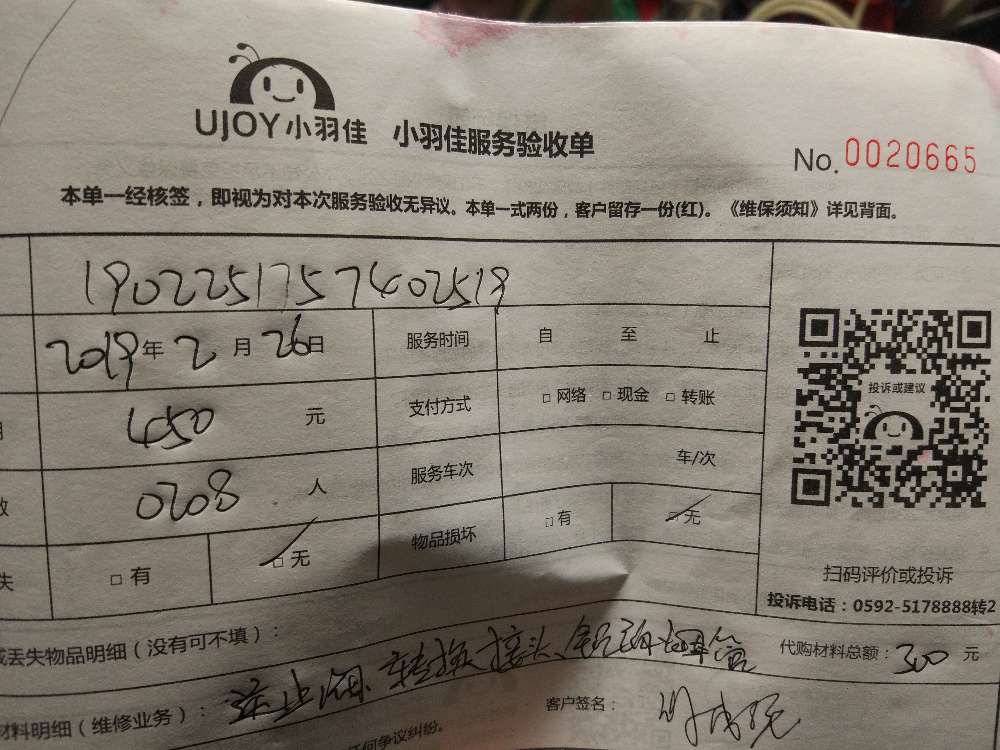 UJOY小羽佳 小羽佳服务验收单
No. 0020665
本单一经核签，即视为对本次服务验收无异议。本单一式两份，客户留存一份(红)。《维保须知》详见背面。
1902251757402519
2019年2月26日 服务时间 自 至 止
450 元 支付方式 □网络 □现金 □转账
0208 人 服务车次 车/次
失 □有 □无 物品损坏 □有 □无
投诉或建议
扫码评价或投诉
投诉电话：0592-5178888转2
或丢失物品明细（没有可不填）：
材料明细（维修业务）：逆止阀、转换接头、铝箔烟管 代购材料总额：300 元
客户签名：
任何争议纠纷。